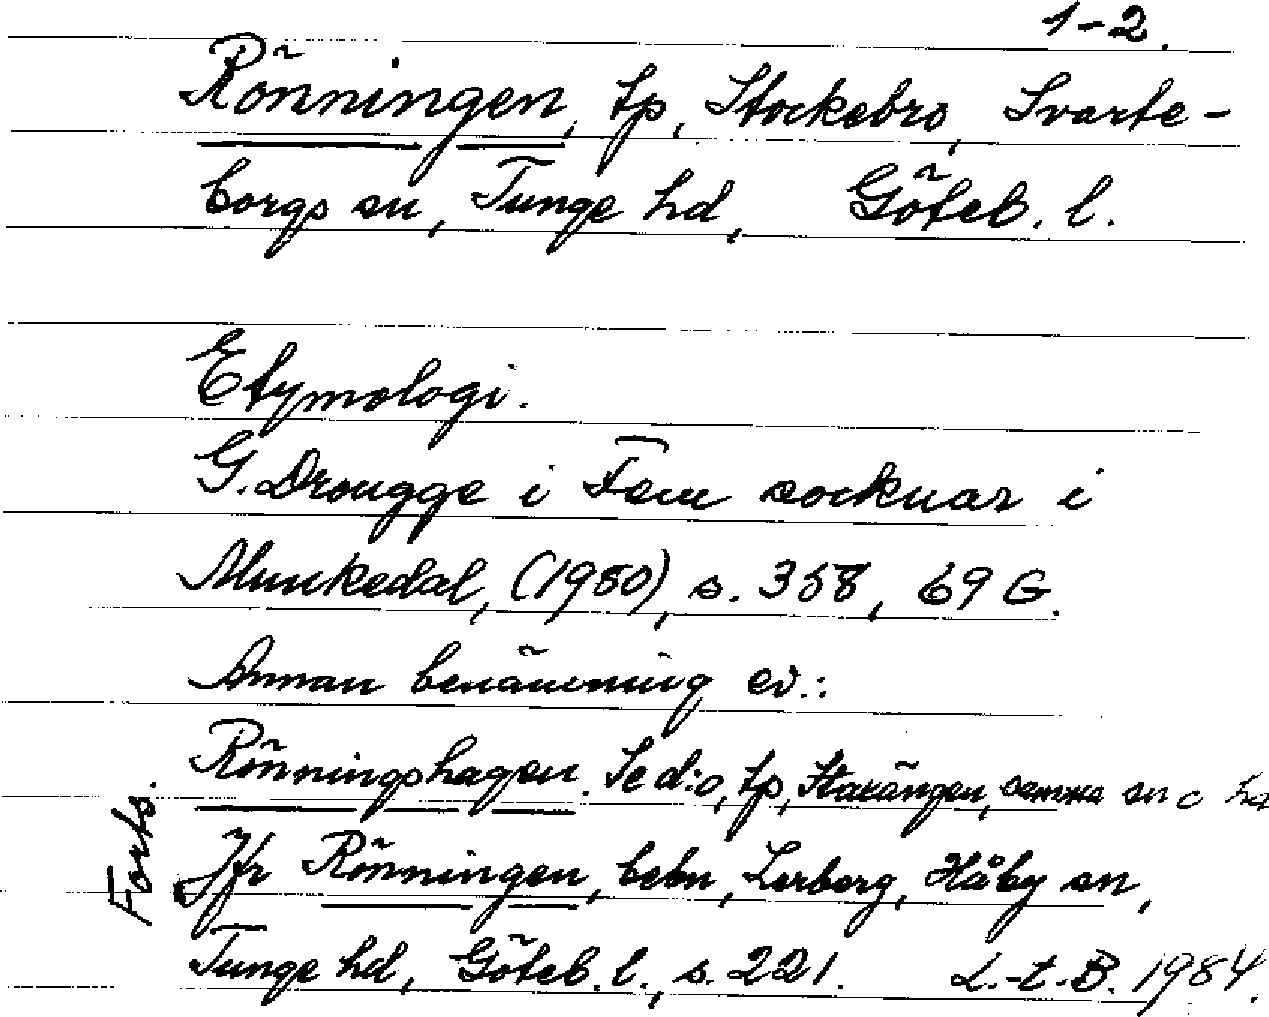 1-2.
Rönningen, tp, Stockebro, Svarte-
borgs sn, Tunge hd, Göteb. l.
Etymologi.
G. Drougge i Fem socknar i
Munkedal, (1980), s. 358, 69 G.
Annan benämning ev.:
Rönningshagen. Se d:o, tp, Stakängen, samma sn o hd
Jfr Rönningen, bebn, Lerberg, Håby sn,
Tunge hd, Göteb. l., s. 221. L.-t.-B. 1984.
Forts.